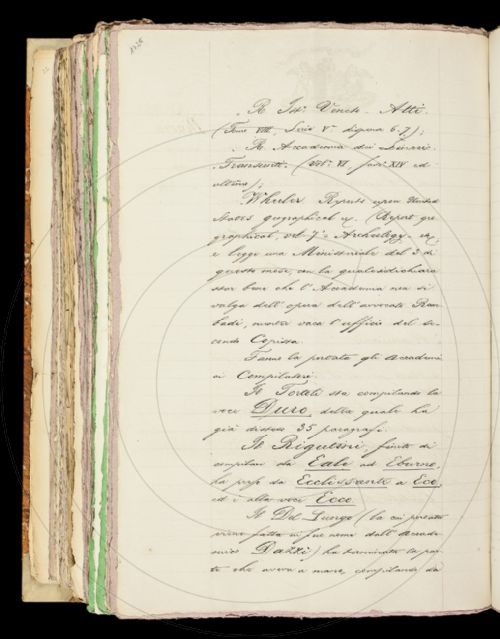 R. Ist.° Veneto. Atti.
(Tomo VIII, Serie V.ª dispensa 6-7);
R. Accademia dei Lincei.
Transunti. (Vol.° VI. fasc.° XIV ed
ultimo);
Wheeler Reports upon United
States geographical &. (Report geo
graphical, vol. 7.° Archeology. ec.
e legge una Ministeriale del 3 di
questo mese, con la quale si dichiara
star bene che l'Accademia non si
valga dell'opera dell'avvocato Ram
baldi, mentre vaca l'ufficio del se
condo Copista.
Fanno la portata gli Accademi
ci Compilatori.
Il Tortoli sta compilando la
voce Duro, della quale ha
già disteso 35 paragrafi.
Il Rigutini, finito di
compilare da Eale ad Eburno,
ha preso da Ecclissante a Eco,
ed è alla voce Ecco.
Il Del Lungo (la cui portata
viene fatta in suo nome dall'Accade
mico Dazzi) ha terminato la par
te che aveva a mano, compilando da